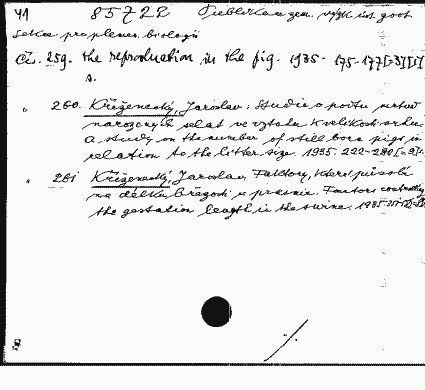 41 85722 Publikace zem. výzk. úst. goot
sekce pro plemen. biologii
Čís. 259. the reproduction in the fig. 1935. 175-177[=3][1]
s.
" 260. Kříženecký, Jaroslav: Studie o počtu mrtvě
narozených selat ve vztahu k velikosti vrhu.
A study on the number of still born pigs in
relation to the litter size. 1935. 222-230[=9]s.
" 261 Kříženecký, Jaroslav Faktory, které působí
na délku březosti u prasnic. Factors controlling
the gestation length in the swine. 1935